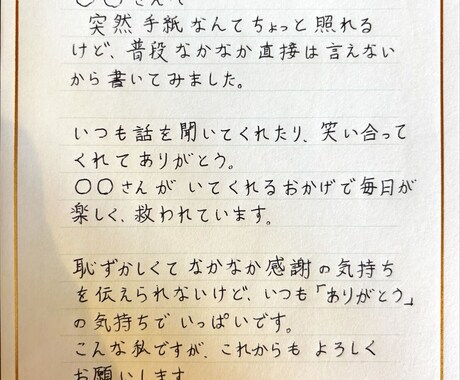 〇〇さんへ
突然手紙なんてちょっと照れる
けど、普段なかなか直接は言えない
から書いてみました。
いつも話を聞いてくれたり、笑い合って
くれてありがとう。
〇〇さんがいてくれるおかげで毎日が
楽しく、救われています。
恥ずかしくてなかなか感謝の気持ち
を伝えられないけど、いつも「ありがとう」
の気持ちでいっぱいです。
こんな私ですが、これからもよろしく
お願いします